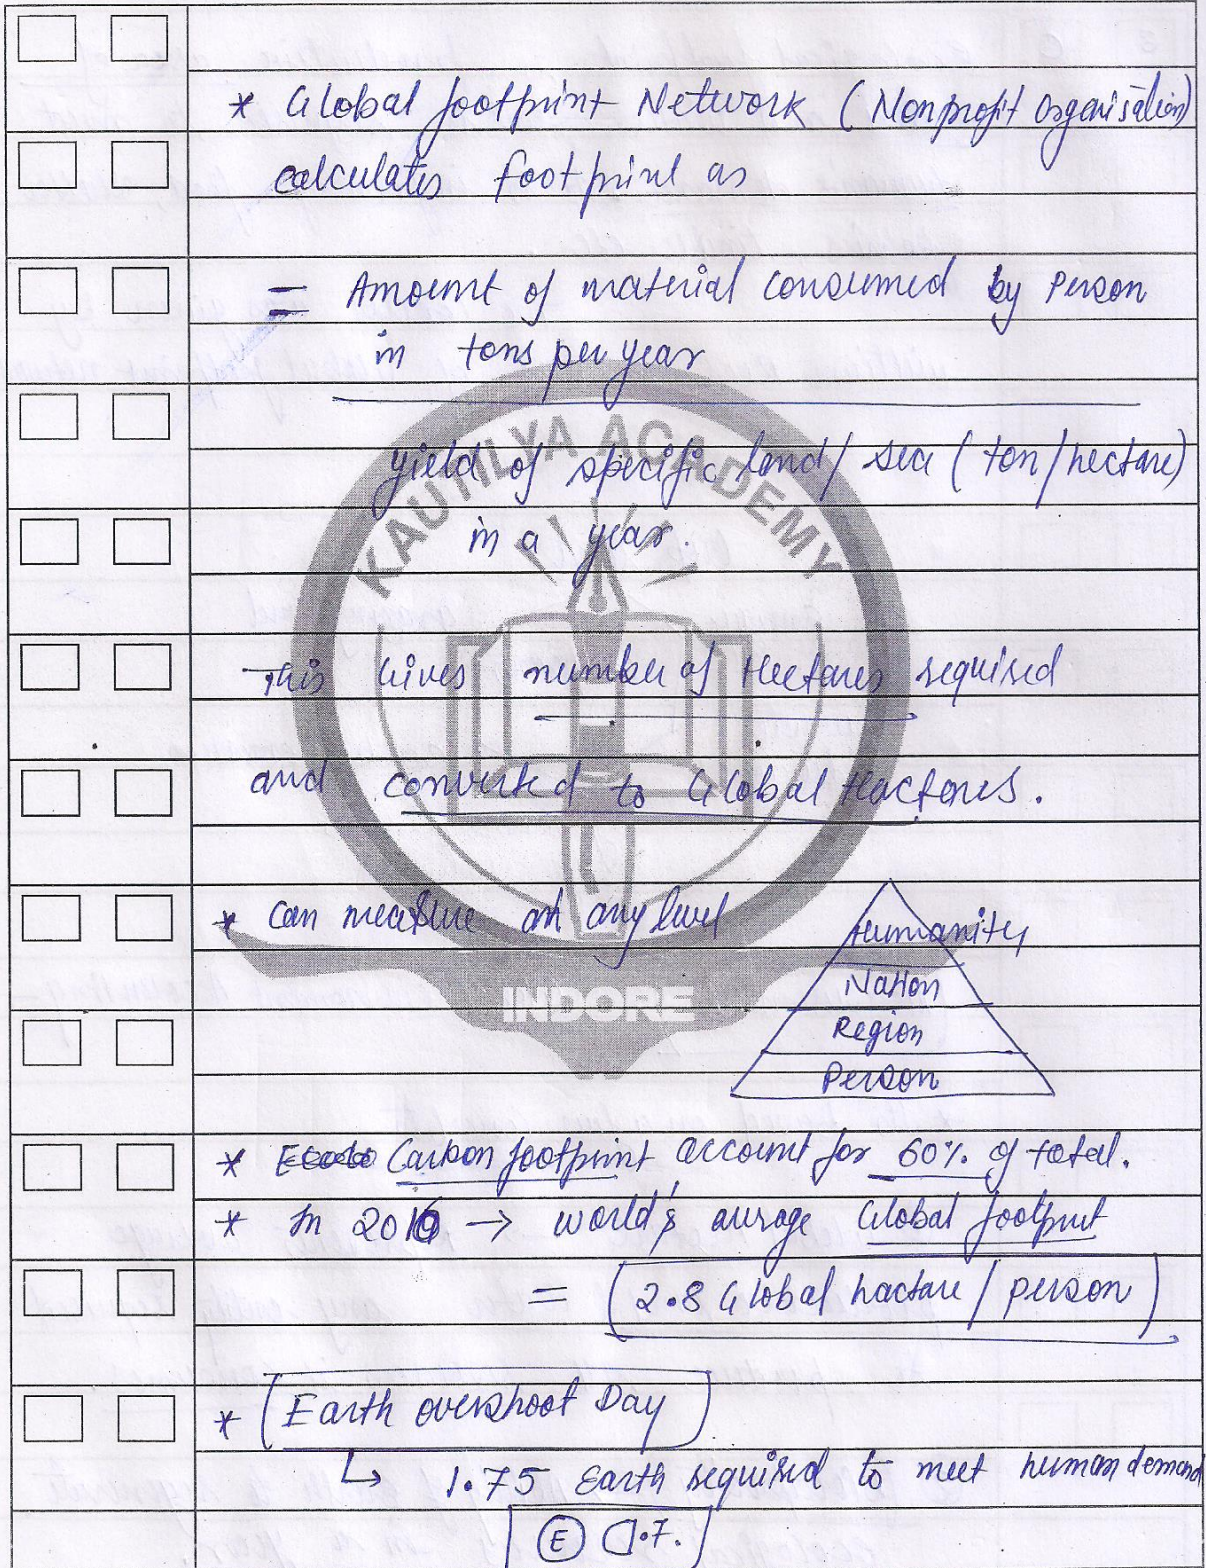 * Global footprint Network (Nonprofit Organisation)
calculates footprint as
= Amount of material consumed by Person
in tons per year
yield of specific land/sea (ton/hectare)
in a year.
This Gives number of Hectares required
and converted to Global Hactares.
* Can measure at any level
Humanity
Nation
Region
Person
* Carbon footprint account for 60% of total.
* In 2016 → world's average Global footprint
= 2.8 Global hactare / person
* Earth overshoot Day
↳ 1.75 Earth required to meet human demand
KAUTILYA ACADEMY
INDORE